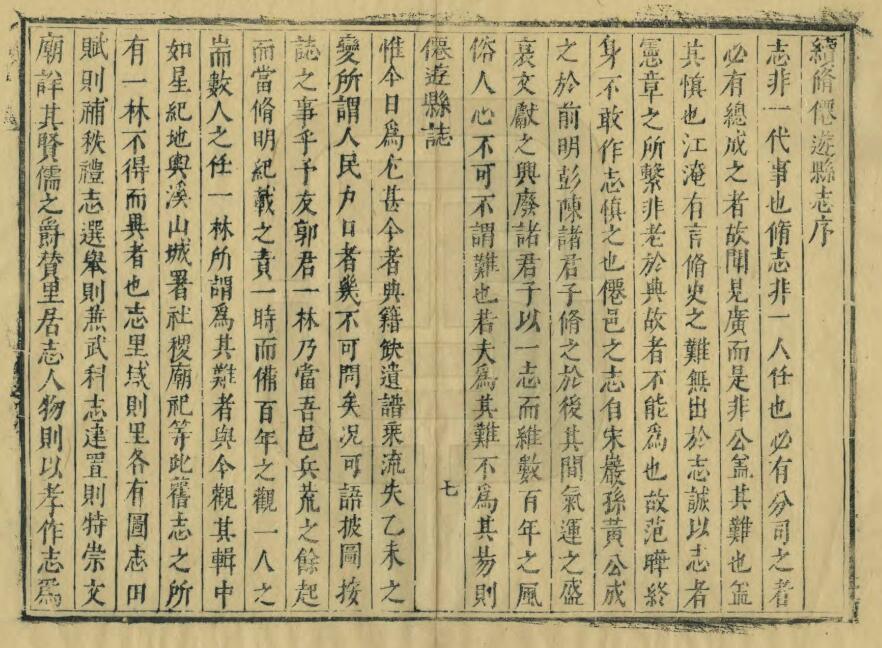 續脩僊遊縣志序
志非一代事也脩志非一人任也必有分司之者
必有總成之者故聞見廣而是非公盖其難也盖
其慎也江淹有言脩史之難無出於志誠以志者
憲章之所繫非老於典故者不能爲也故范曄終
身不敢作志慎之也僊邑之志自宋巖孫黃公成
之於前明彭陳諸君子脩之於後其間氣運之盛
衰文獻之興廢諸君子以一志而維數百年之風
俗人心不可不謂難也若夫爲其難不爲其易則
僊遊縣誌
七
惟今日爲尤甚今者典籍缺遺譜乘流失乙未之
變所謂人民户口者幾不可問矣况可語披圖按
誌之事乎予友郭君一林乃當吾邑兵荒之餘起
而當脩明紀載之責一時而備百年之觀一人之
耑數人之任一林所謂爲其難者與今觀其輯中
如星紀地輿溪山城署社稷廟祀等此舊志之所
有一林不得而異者也志里域則里各有圖志田
賦則補秩禮志選舉則燕武科志建置則特崇文
廟詳其賢儒之爵賛里居志人物則以孝作志爲